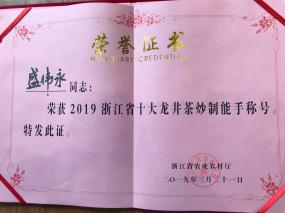 荣誉证书
HONORARY CREDENTIAL
盛伟永同志：
荣获2019浙江省十大龙井茶炒制能手称号。
特发此证。
浙江省农业农村厅
二〇一九年三月二十一日